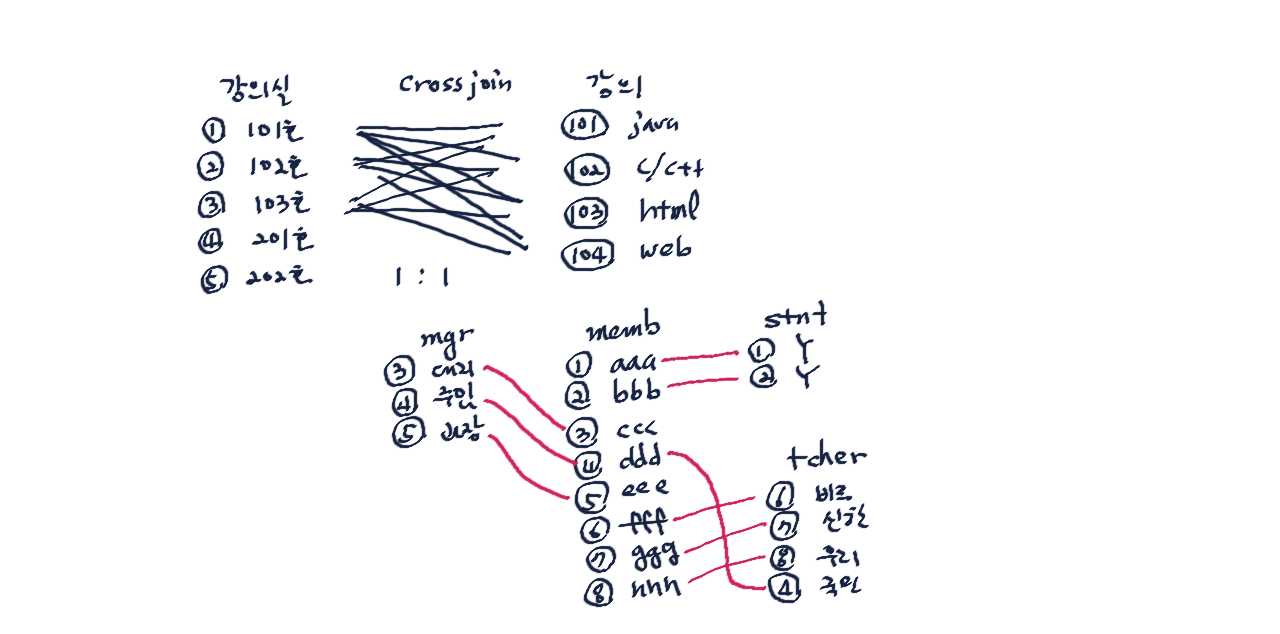 강의실
① 101호
② 102호
③ 103호
④ 201호
⑤ 202호
Cross join
1 : 1
강의
101 java
102 c/c++
103 html
104 web
mgr
③ 대리
④ 주임
⑤ 과장
memb
① aaa
② bbb
③ ccc
④ ddd
⑤ eee
⑥ fff
⑦ ggg
⑧ hhh
stnt
① Y
② Y
tcher
⑥
⑦ 신한
⑧ 우리
④